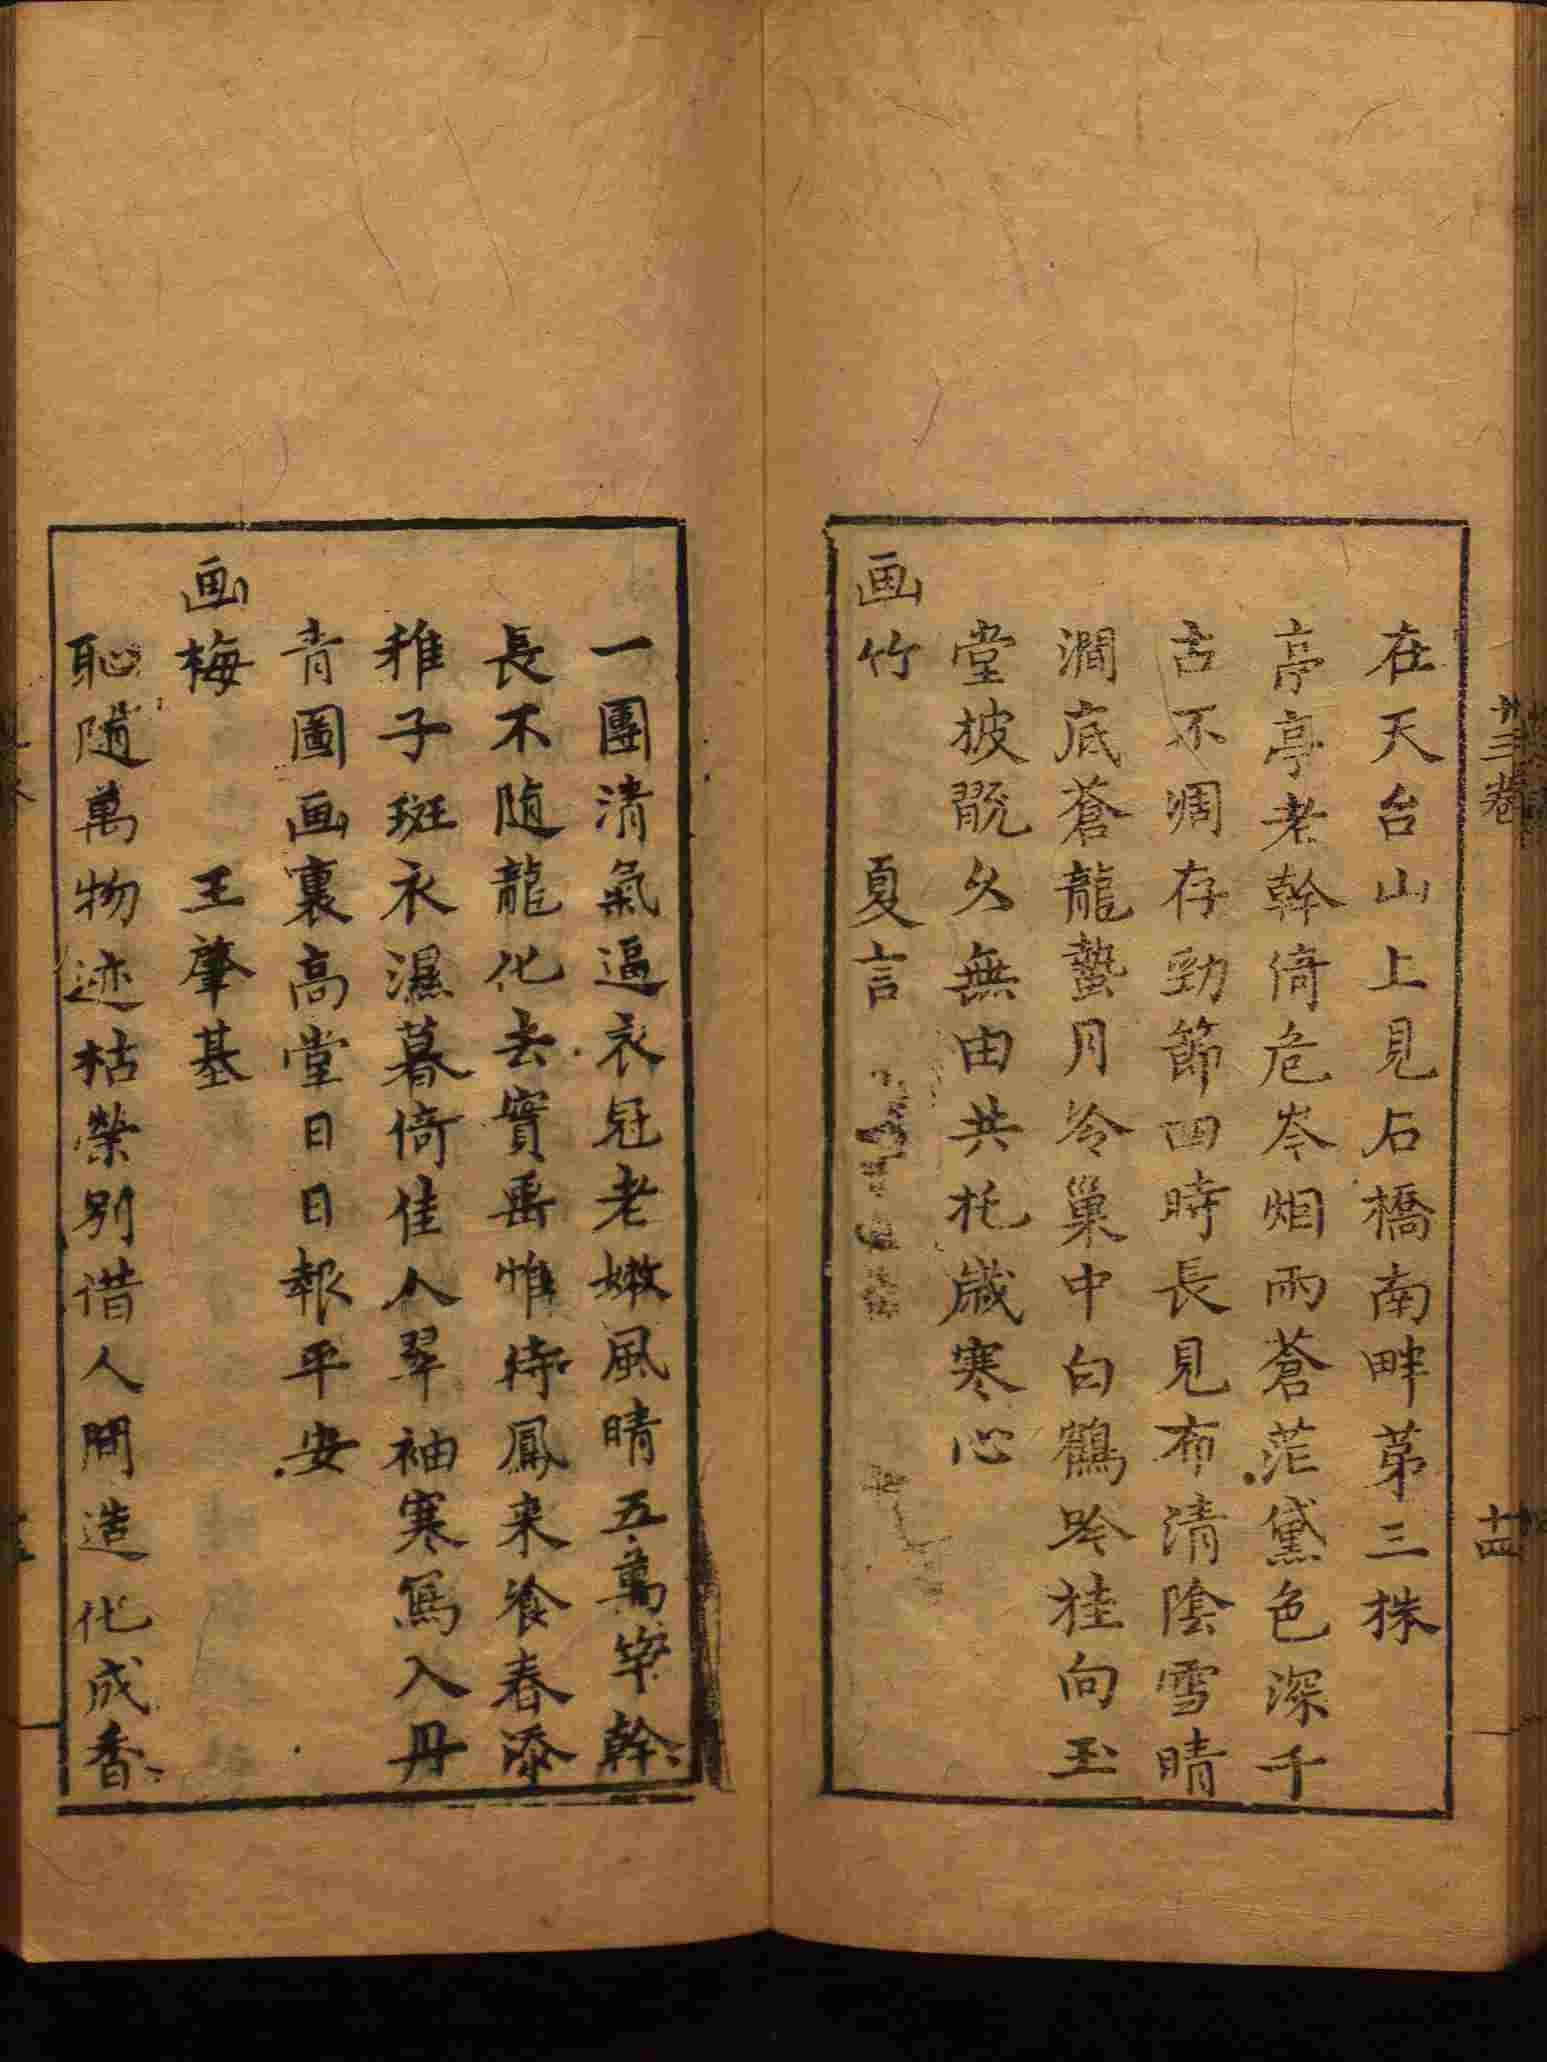 卅三卷
十四
在天台山上見石橋南畔苐三株
亭亭老幹倚危岑烟雨蒼茫黛色深千
古不凋存勁節四時長見布清陰雪晴
澗底蒼龍蟄月冷巢中白鶴吟挂向玉
堂披翫久無由共托歲寒心
画竹 夏言
一團清氣逼衣冠老嫩風晴五萬竿幹
長不随龍化去實垂惟待鳳来飡春添
稚子斑衣濕暮倚佳人翠袖寒寫入丹
青圖画裏高堂日日報平安
画梅 王肇基
恥隨萬物迹枯榮別借人間造化成香